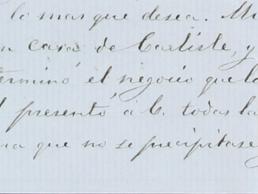 lo mas que desea. Mi
casa de Carliste, y
terminó el negocio que l
presentó á C. todas la
que no se precipitase